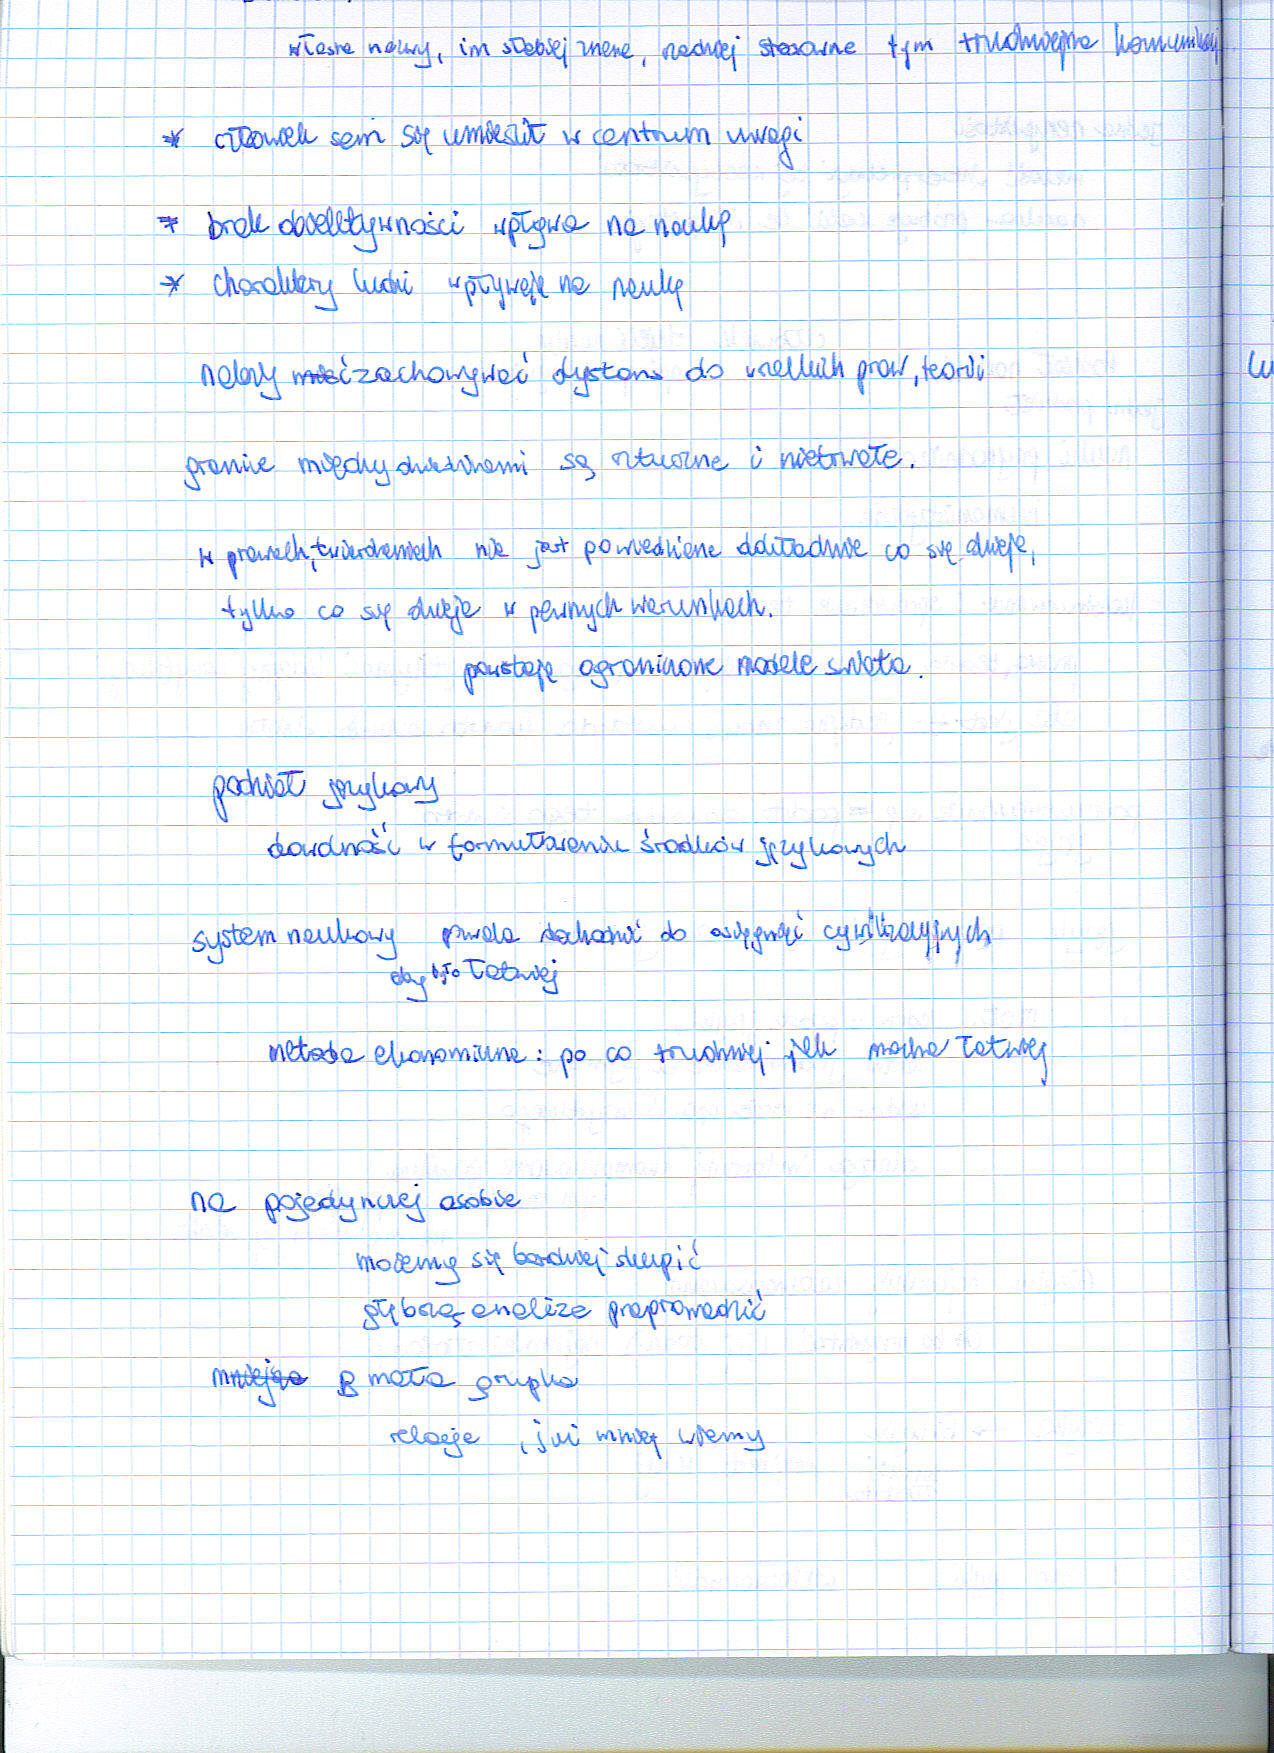 własne nazwy, im słabiej znane, rzadziej stosowane tym trudniejsza komunikacj
* człowiek sam się umieścił w centrum uwagi
* brak obiektywności wpływa na naukę
* charaktery ludzi wpływają na naukę
należy zachowywać dystans do wszelkich praw, teorii
granice między dziedzinami są sztuczne i nietrwałe.
w prawach, twierdzeniach nie jest powiedziane dokładnie co się dzieje,
tylko co się dzieje w pewnych warunkach.
powstają ograniczone modele świata.
podział językowy
dowolność w formułowaniu środków językowych
system naukowy pozwala dochodzić do osiągnięć cywilizacyjnych
aby było łatwiej
metoda ekonomiczna: po co trudniej jak można łatwiej
na pojedynczej osobie
możemy się bardziej skupić
głębszą analizę przeprowadzić
mała grupka
relacje, już mniej wiemy